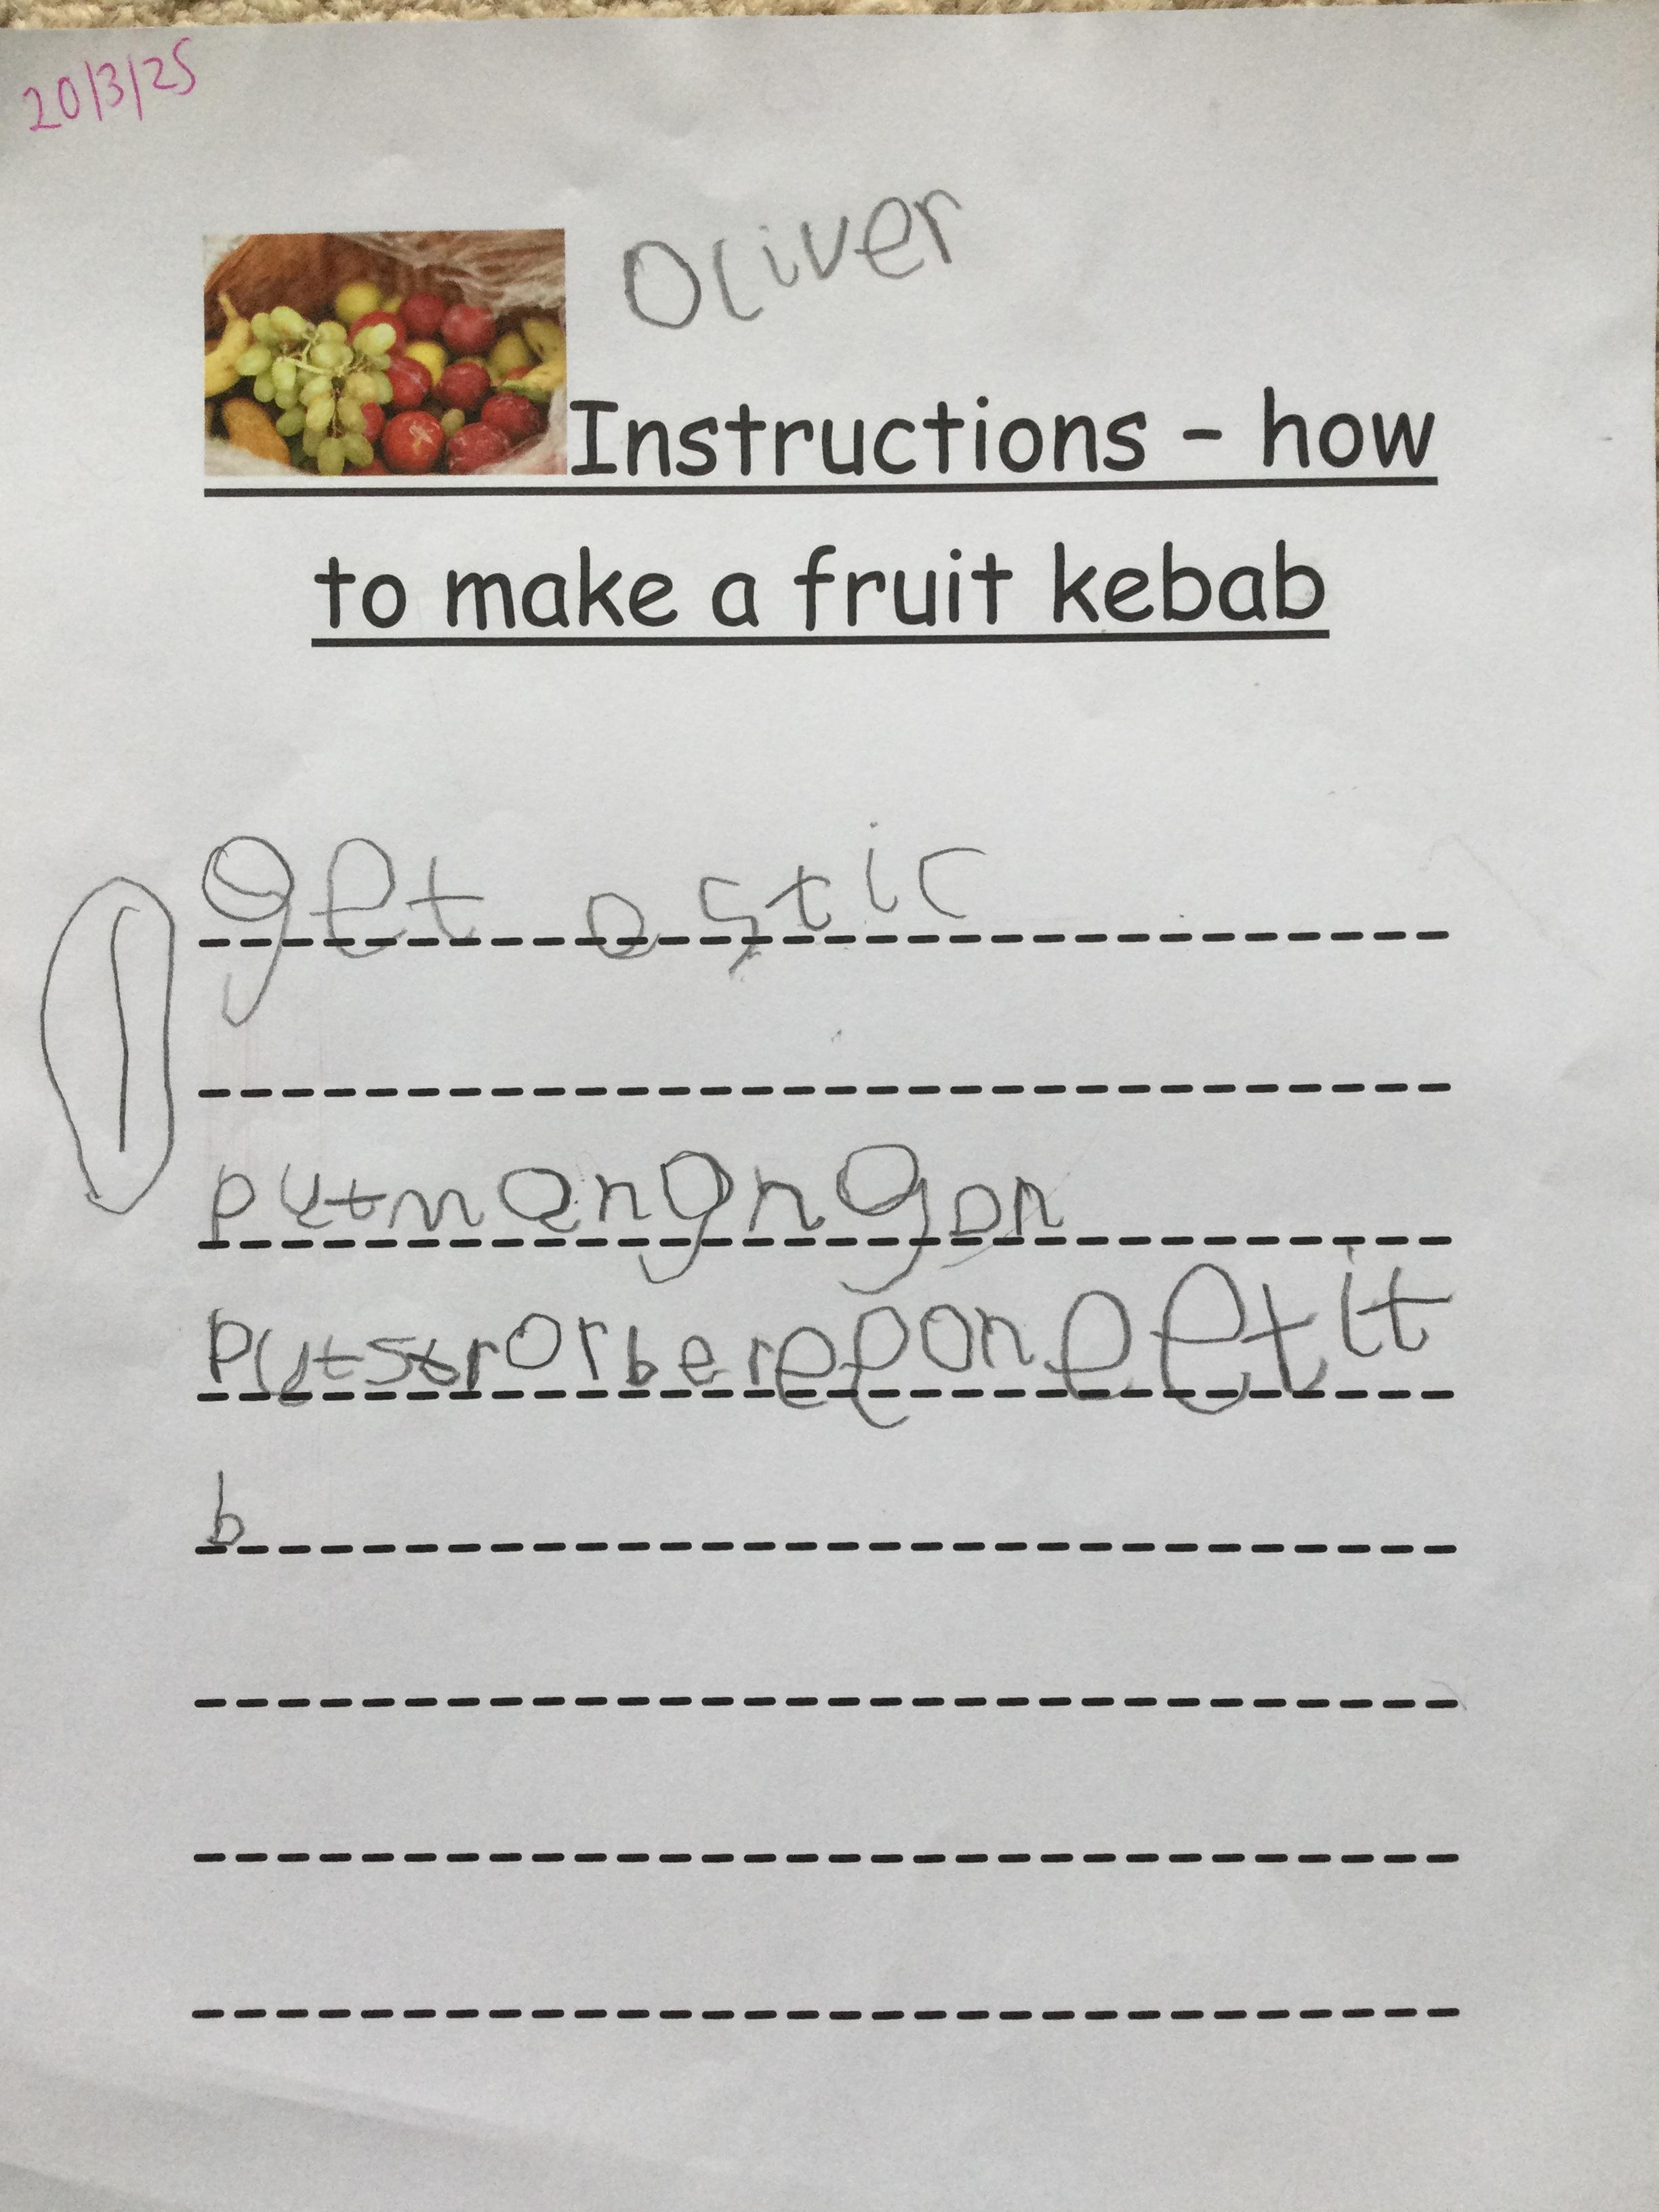 20/3/25
Oliver
Instructions - how
to make a fruit kebab
get a stic
putmangngon
putstrorbereeoneetit
b